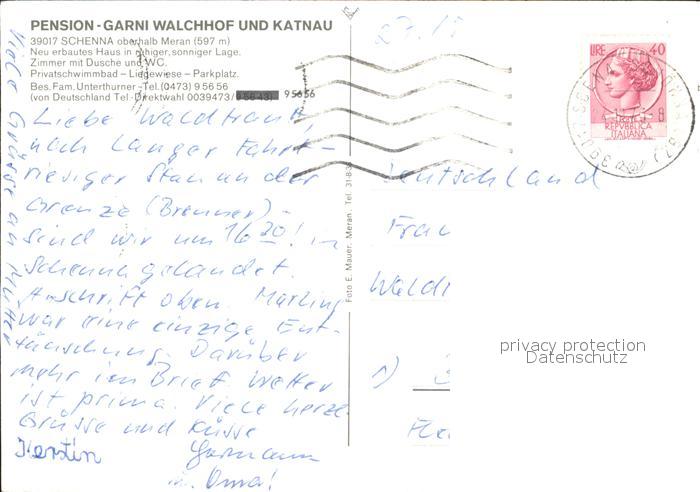 PENSION - GARNI WALCHHOF UND KATNAU
39017 SCHENNA oberhalb Meran (597 m)
Neu erbautes Haus in ruhiger, sonniger Lage.
Zimmer mit Dusche und WC.
Privatschwimmbad – Liegewiese – Parkplatz.
Bes. Fam. Unterthurner - Tel. (0473) 95656
(von Deutschland Tel.-Direktwahl 0039473/ 95656
Liebe Waldtraut,
nach langer Fahrt –
riesiger Stau an der
Grenze (Brenner) –
sind wir um 16 20! in
Schenna gelandet.
Anschrift oben. Marling
war eine einzige Ent-
täuschung. Darüber
mehr im Brief. Wetter
ist prima. Viele herzl.
Grüsse und Küsse
Kerstin
Oma!
Viele Grüsse an Mutter
Foto E. Mauer, Meran, Tel.
LIRE 40
REPVBBLICA
ITALIANA
Deutschland
Frau
privacy protection
Datenschutz